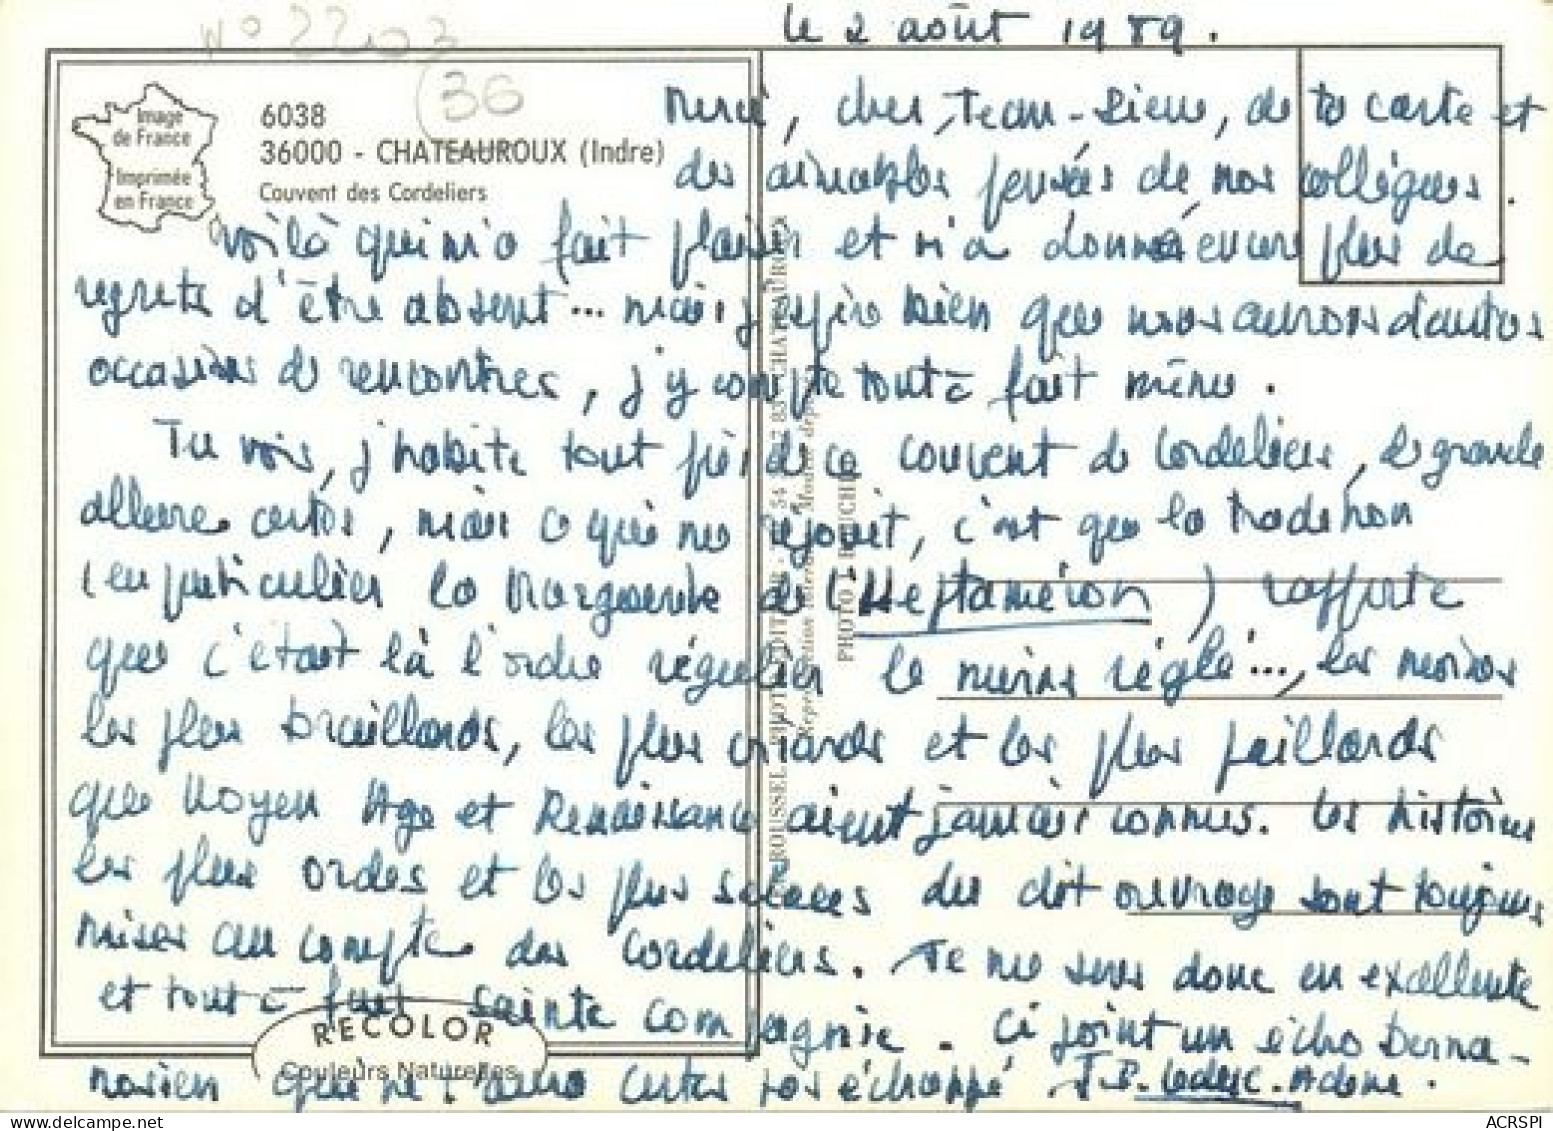 le 2 août 1989.
N° 22203
(36
Image
de France
Imprimée
en France
6038
36000 - CHATEAUROUX (Indre)
Couvent des Cordeliers
Merci, cher Jean-Pierre, de ta carte et
des aimables pensées de nos collègues.
voilà qui m'a fait plaisir et m'a donné encore plus de
regrets d'être absent... mais j'espère bien que nous aurons d'autres
occasions de rencontres, j'y compte tout à fait même.
Tu vois, j'habite tout près de ce couvent de Cordeliers, de grande
allure certes, mais ce qui me réjouit, c'est que la tradition
(en particulier la Marguerite de l'Heptaméron) rapporte
que c'était là l'ordre régulier le moins réglé..., les moines
les plus braillards, les plus criards et les plus paillards
que Moyen Age et Renaissance aient jamais connus. Les histoires
les plus ordes et les plus salaces du dit ouvrage sont toujours
mises au compte des Cordeliers. Je me sens donc en excellente
et tout à fait sainte compagnie. Ci joint un écho Berna-
nosien qui ne t'aura certes pas échappé J.P. Leclerc-Adone.
RECOLOR
Couleurs Naturelles
PHOTO
ACRSPI